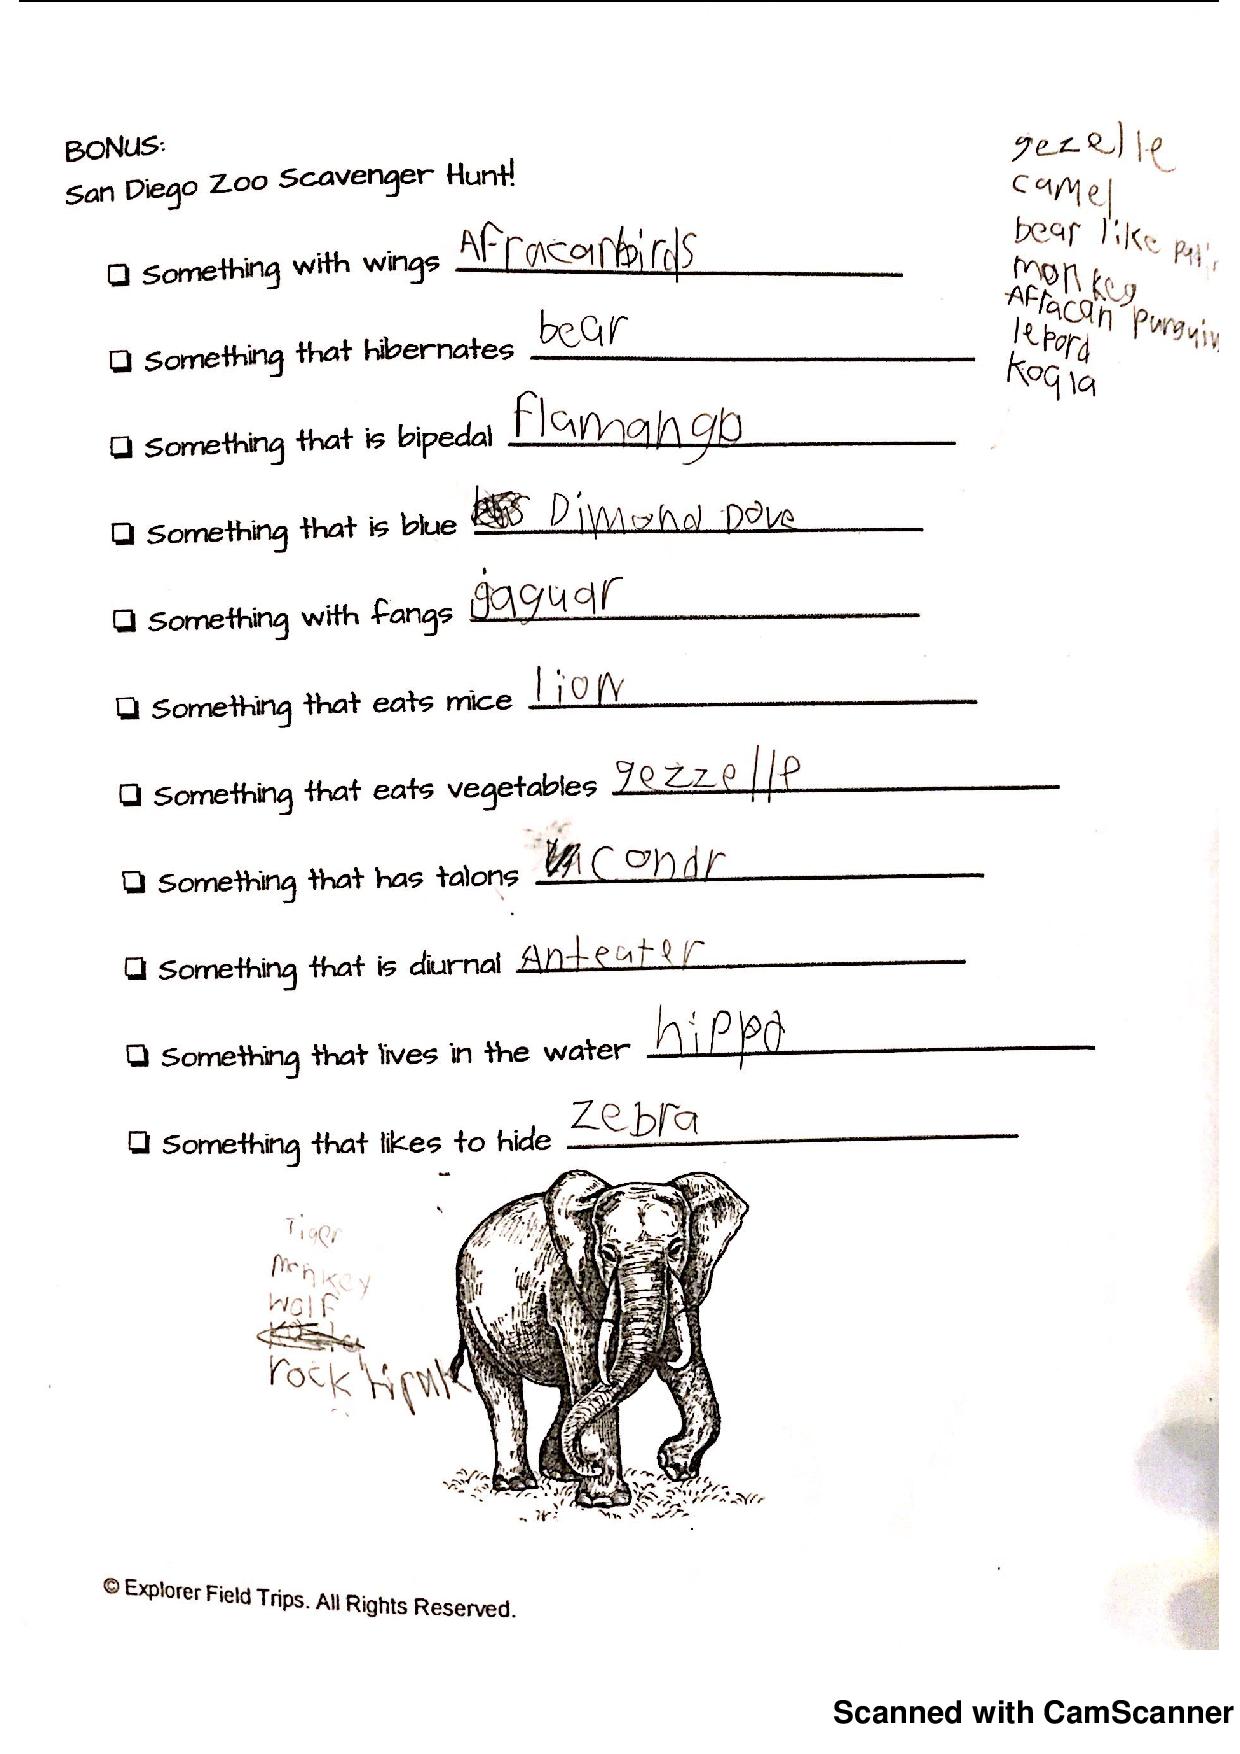 BONUS:
San Diego Zoo Scavenger Hunt!
gezelle
camel
bear like
monkey
Afracan purguin
lepord
koqla
Something with wings Afracanbirds
Something that hibernates bear
Something that is bipedal flamango
Something that is blue Dimond Dove
Something with fangs jaguar
Something that eats mice lion
Something that eats vegetables gezzelle
Something that has talons condr
Something that is diurnal Anteater
Something that lives in the water hippo
Something that likes to hide zebra
Tiger
monkey
wolf
rock
© Explorer Field Trips. All Rights Reserved.
Scanned with CamScanner